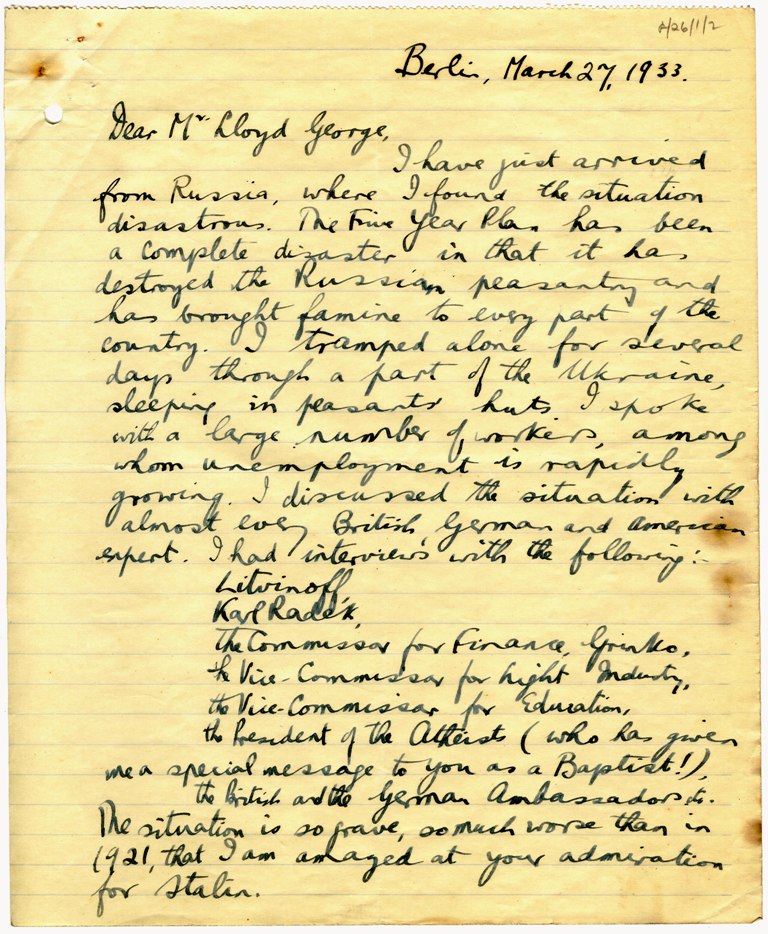 A/26/1/2
Berlin, March 27, 1933.
Dear Mr Lloyd George,
I have just arrived
from Russia, where I found the situation
disastrous. The Five Year Plan has been
a complete disaster in that it has
destroyed the Russian peasantry and
has brought famine to every part of the
country. I tramped alone for several
days through a part of the Ukraine,
sleeping in peasants' huts. I spoke
with a large number of workers, among
whom unemployment is rapidly
growing. I discussed the situation with
almost every British German and American
expert. I had interviews with the following:-
Litvinoff,
Karl Radek,
the Commissar for Finance, Grinko,
the Vice-Commissar for Light Industry,
the Vice-Commissar for Education,
the President of the Atheists (who has given
me a special message to you as a Baptist!),
the British and the German Ambassadors etc.
The situation is so grave, so much worse than in
1921, that I am amazed at your admiration
for Stalin.